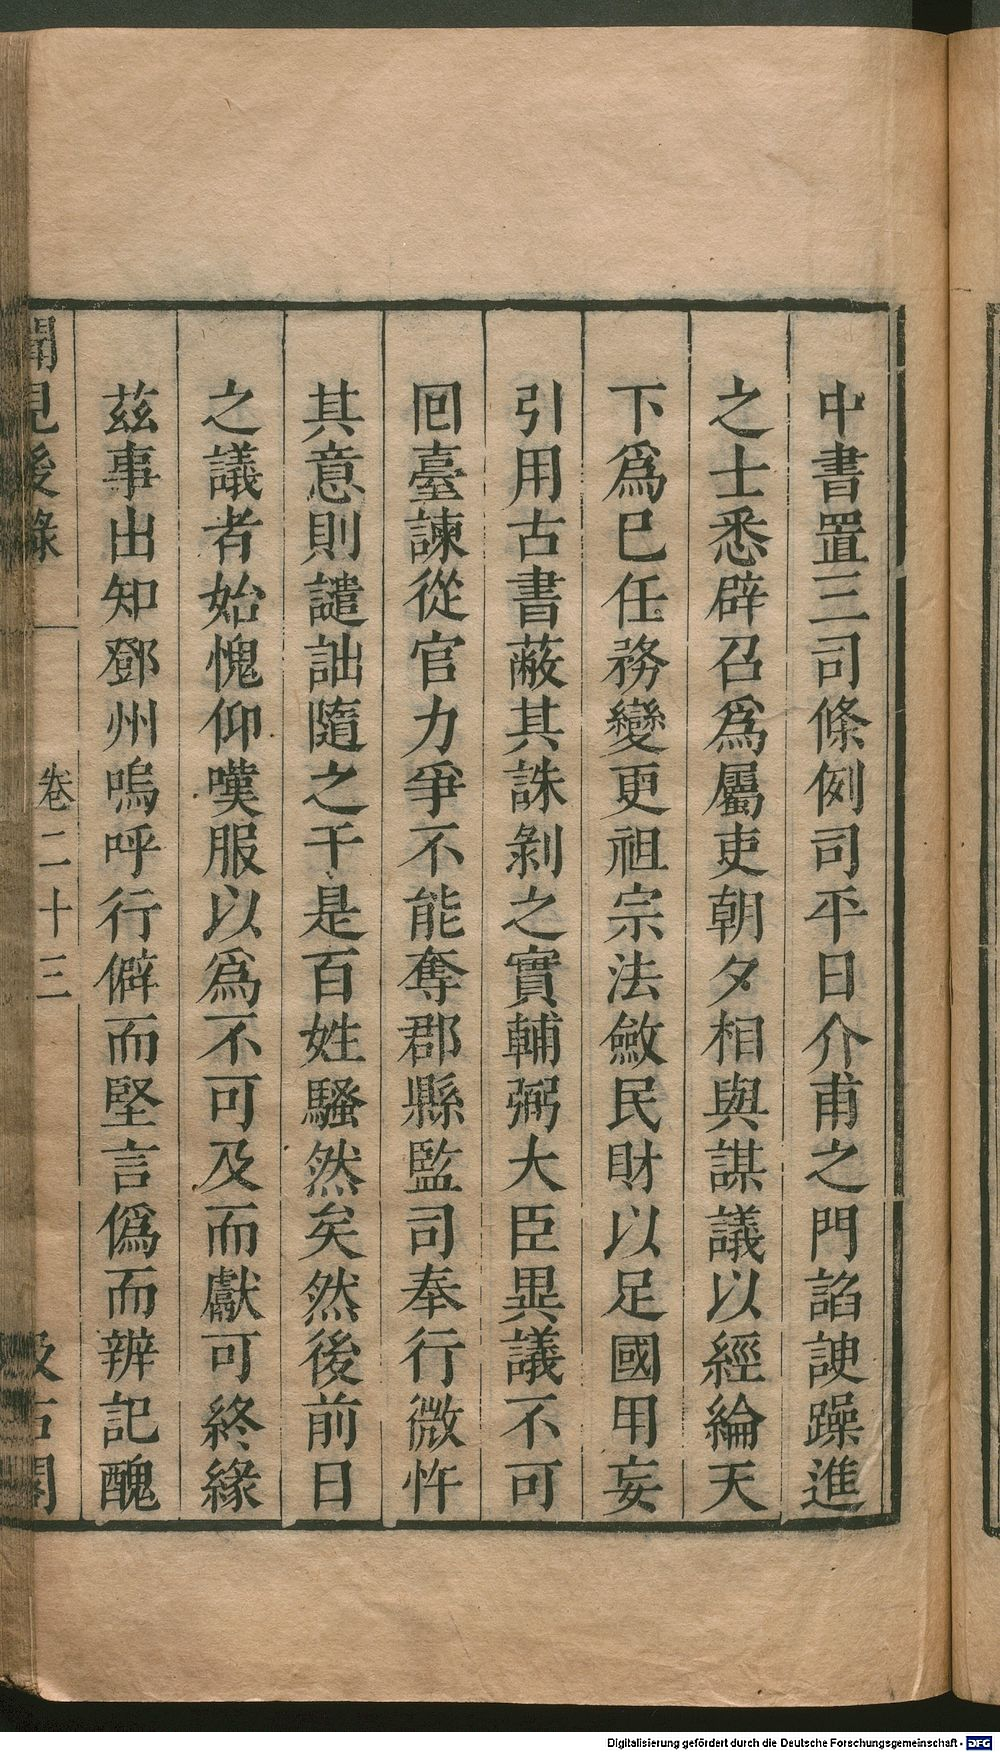 中書置三司條例司平日介甫之門諂諛躁進
之士悉辟召爲屬吏朝夕相與謀議以經綸天
下爲巳任務變更祖宗法斂民財以足國用妄
引用古書蔽其誅剝之實輔弼大臣異議不可
回臺諫從官力爭不能奪郡縣監司奉行微忤
其意則譴詘隨之于是百姓騷然矣然後前日
之議者始愧仰嘆服以爲不可及而獻可終緣
茲事出知鄧州嗚呼行僻而堅言僞而辨記醜
聞見後錄 卷二十三 汲古閣
Digitalisierung gefördert durch die Deutsche Forschungsgemeinschaft - DFG